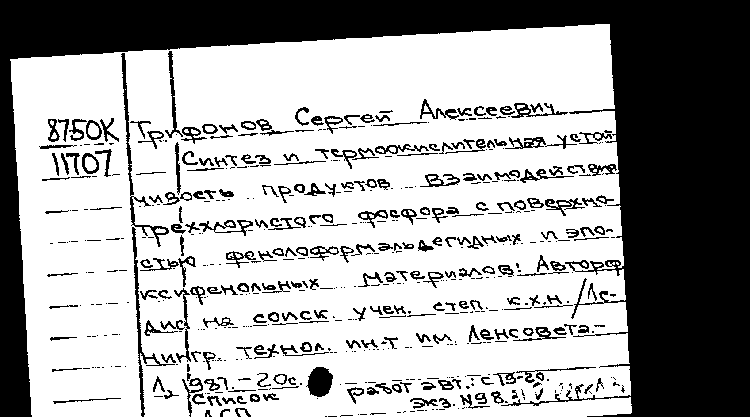 8750К
11707
Трифонов Сергей Алексеевич
Синтез и термоокислительная устой-
чивость продуктов взаимодействия
треххлористого фосфора с поверхно-
стью фенолоформальдегидных и эпо-
ксифенольных материалов: Автореф.
дис на соиск. учен. степ. к.х.н. / Ле-
нингр. технол. ин-т им. Ленсовета.-
Л., 1987. - 20с.
Список работ авт.: с 19-20.
ДСП экз. N98.